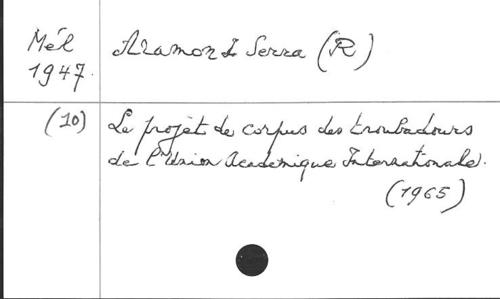 Mél
1947.
Aramon I Serra (R)
(10)
Le projet de corpus des troubadours
de l'Union Académique Internationale.
(1965)